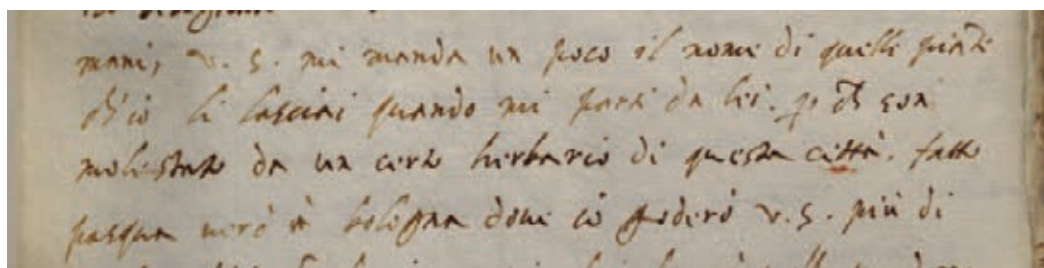 mani, v. s. mi manda un poco il nome di quelle piante
ch'io li lasciai quando mi parti da lei. son
molestato da un certo herbario di questa città. fatto
pasqua verò à bologna doue io goderò v. s. più di